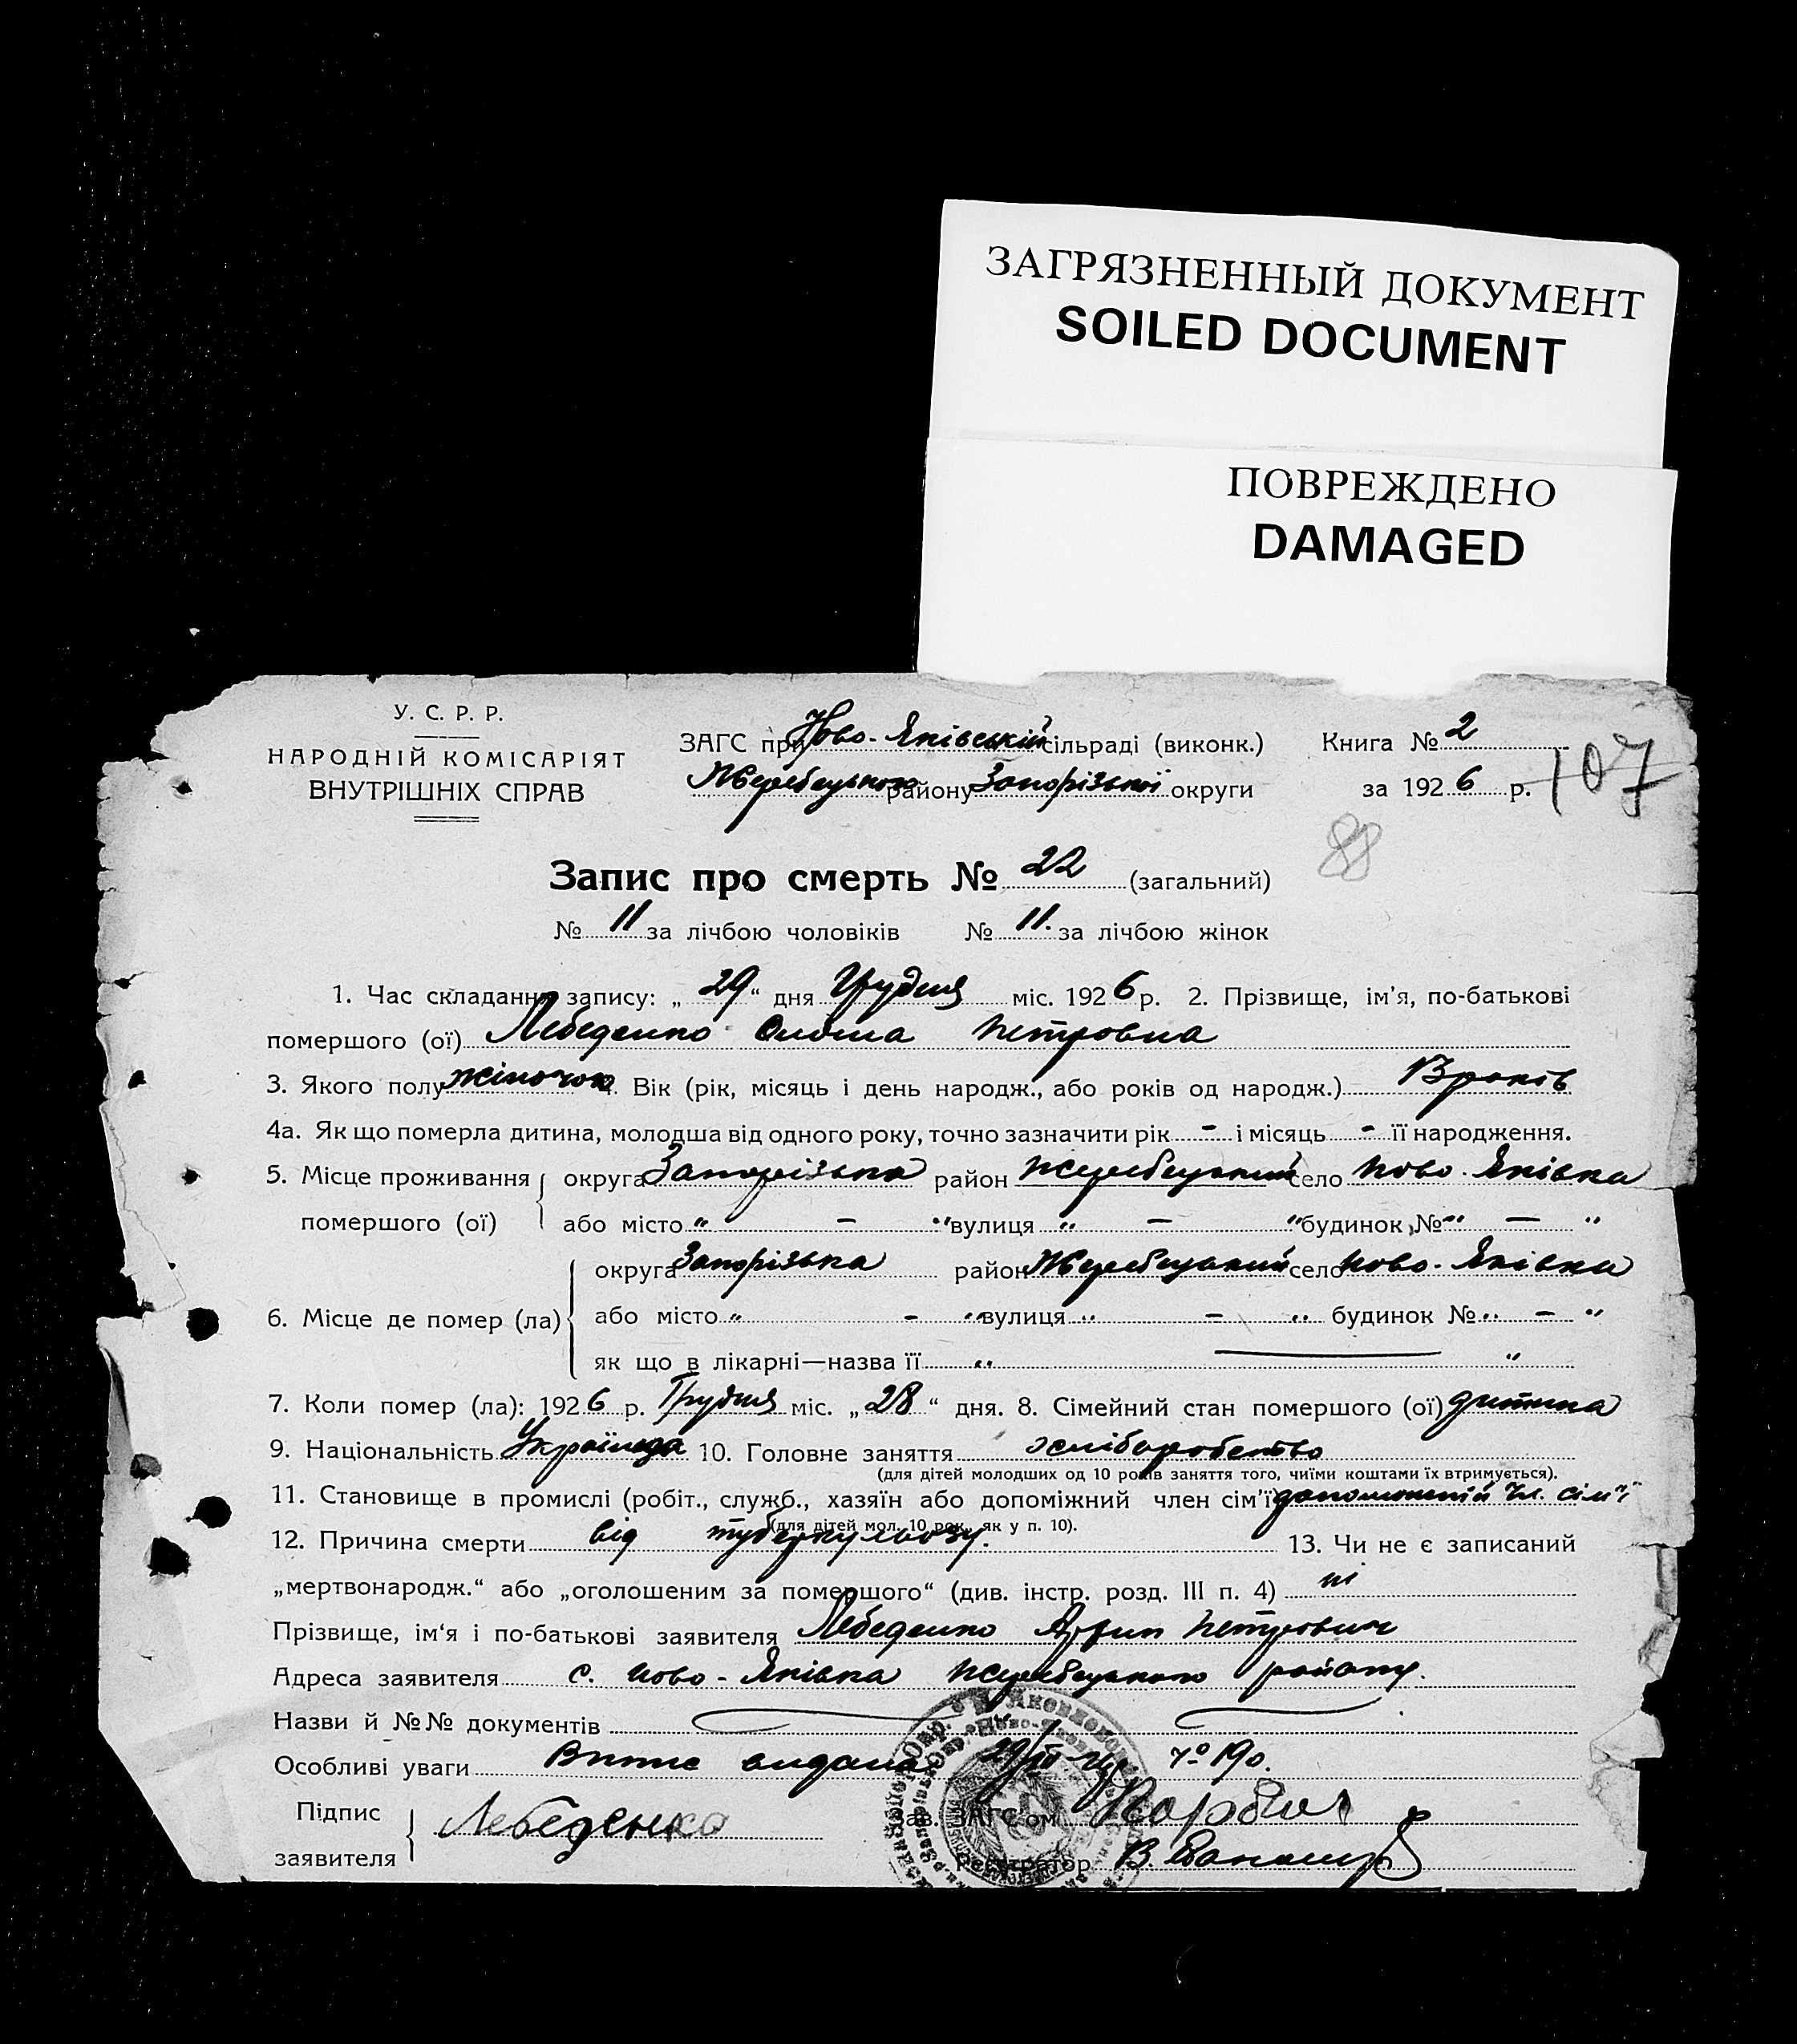 ЗАГРЯЗНЕННЫЙ ДОКУМЕНТ
SOILED DOCUMENT
ПОВРЕЖДЕНО
DAMAGED
У. С. Р. Р.
НАРОДНІЙ КОМІСАРІЯТ
ВНУТРІШНІХ СПРАВ
ЗАГС при Ново-Яківській сільраді (виконк.)
Жеребецького району Запорізької округи
Книга № 2
за 1926 р.
107
88
Запис про смерть № 22 (загальний)
№ 11 за лічбою чоловіків № 11. за лічбою жінок
1. Час складання запису: „ 29 “ дня Грудня міс. 1926 р. 2. Прізвище, ім’я, по-батькові
помершого (ої) Лебеденко Петровна
3. Якого полу жіночого 4. Вік (рік, місяць і день народж., або років од народж.) років
4а. Як що померла дитина, молодша від одного року, точно зазначити рік - і місяць - її народження.
5. Місце проживання округа Запорізька район Жеребецький село Ново-Яківка
помершого (ої) або місто „ — “ вулиця „ — “ будинок № „ — “
округа Запорізька район Жеребецький село Ново-Яківка
6. Місце де помер (ла) або місто „ - “ вулиця „ — “ будинок № „ — “
як що в лікарні—назва її „ — “
7. Коли помер (ла): 1926 р. Грудня міс. „ 28 “ дня. 8. Сімейний стан помершого (ої) дитина
9. Національність Українка 10. Головне заняття хліборобство
(для дітей молодших од 10 років заняття того, чиїми коштами їх втримується).
11. Становище в промислі (робіт., служб., хазяїн або допоміжний член сім’ї допоможній чл. сім’ї
(для дітей мол. 10 рок., як у п. 10).
12. Причина смерти від туберкульозу. 13. Чи не є записаний
„мертвонародж.“ або „оголошеним за помершого“ (див. інстр. розд. III п. 4) ні
Прізвище, ім‘я і по-батькові заявителя Лебеденко Петрович
Адреса заявителя с. Ново-Яківка Жеребецького району.
Назви й №№ документів
Особливі уваги видана 29/XII 190.
Підпис
заявителя Лебеденко
Зав. ЗАГС‘ом
Реєстратор В.